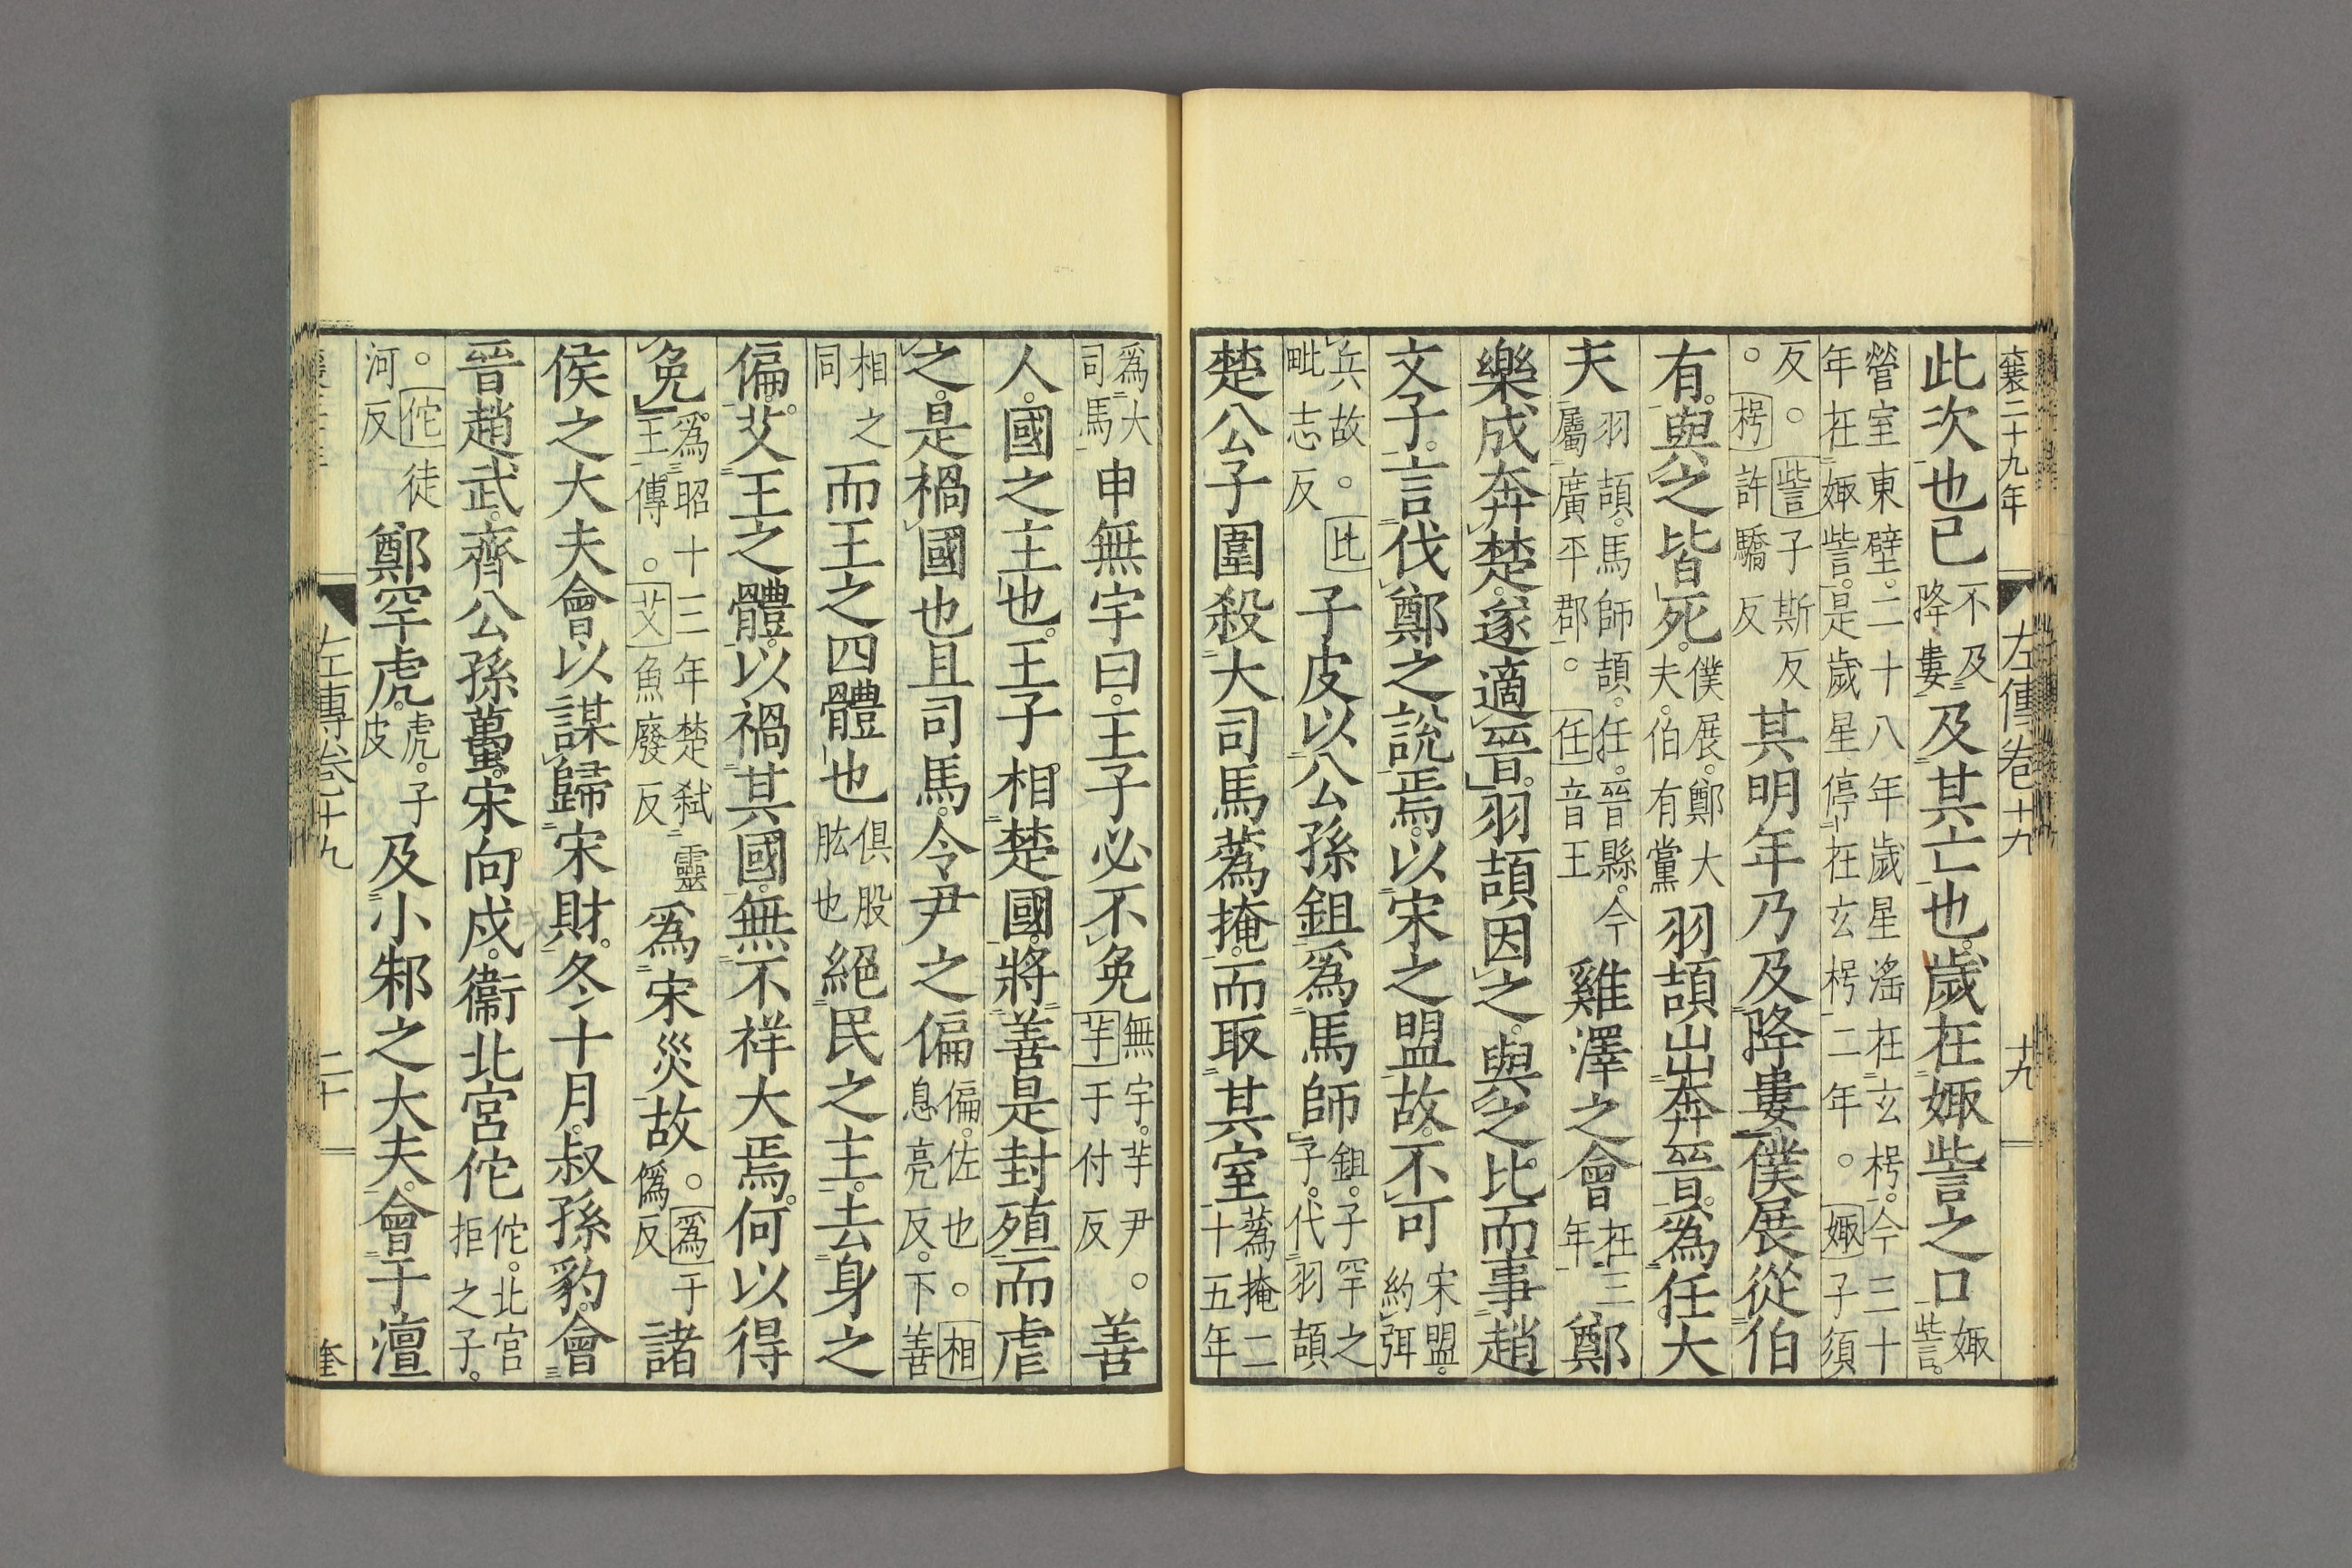 襄二十九年
左傳卷十九
十九
此次也已不及降婁及其亡也歲在娵訾之口娵訾
營室東壁二十八年歲星淫在玄枵今三十
年在娵訾是歲星停在玄枵二年。娵子須
反。訾子斯反。枵許驕反其明年乃及降婁僕展從伯
有與之皆死僕展鄭大夫伯有黨羽頡出奔晉爲任大
夫羽頡馬師頡任晉縣今屬廣平郡。任音王雞澤之會在三年鄭
樂成奔楚遂適晉羽頡因之與之比而事趙
文子言伐鄭之說焉以宋之盟故不可宋盟約弭
兵故。比毗志反子皮以公孫鉏爲馬師鉏子罕之子代羽頡
楚公子圍殺大司馬蒍掩而取其室蒍掩二十五年
爲大司馬申無宇曰王子必不免無宇芋尹。芋于付反善
人國之主也王子相楚國將善是封殖而虐
之是禍國也且司馬令尹之偏偏佐也。相息亮反下善
相之同而王之四體也俱股肱也絕民之主去身之
偏艾王之體以禍其國無不祥大焉何以得
免爲昭十三年楚弒靈王傳。艾魚廢反爲宋災故。爲于僞反諸
侯之大夫會以謀歸宋財冬十月叔孫豹會
晉趙武齊公孫蠆宋向戌衞北宮佗佗北宮拒之子
。佗徒河反鄭罕虎虎子皮及小邾之大夫會于澶
左傳卷十九
二十